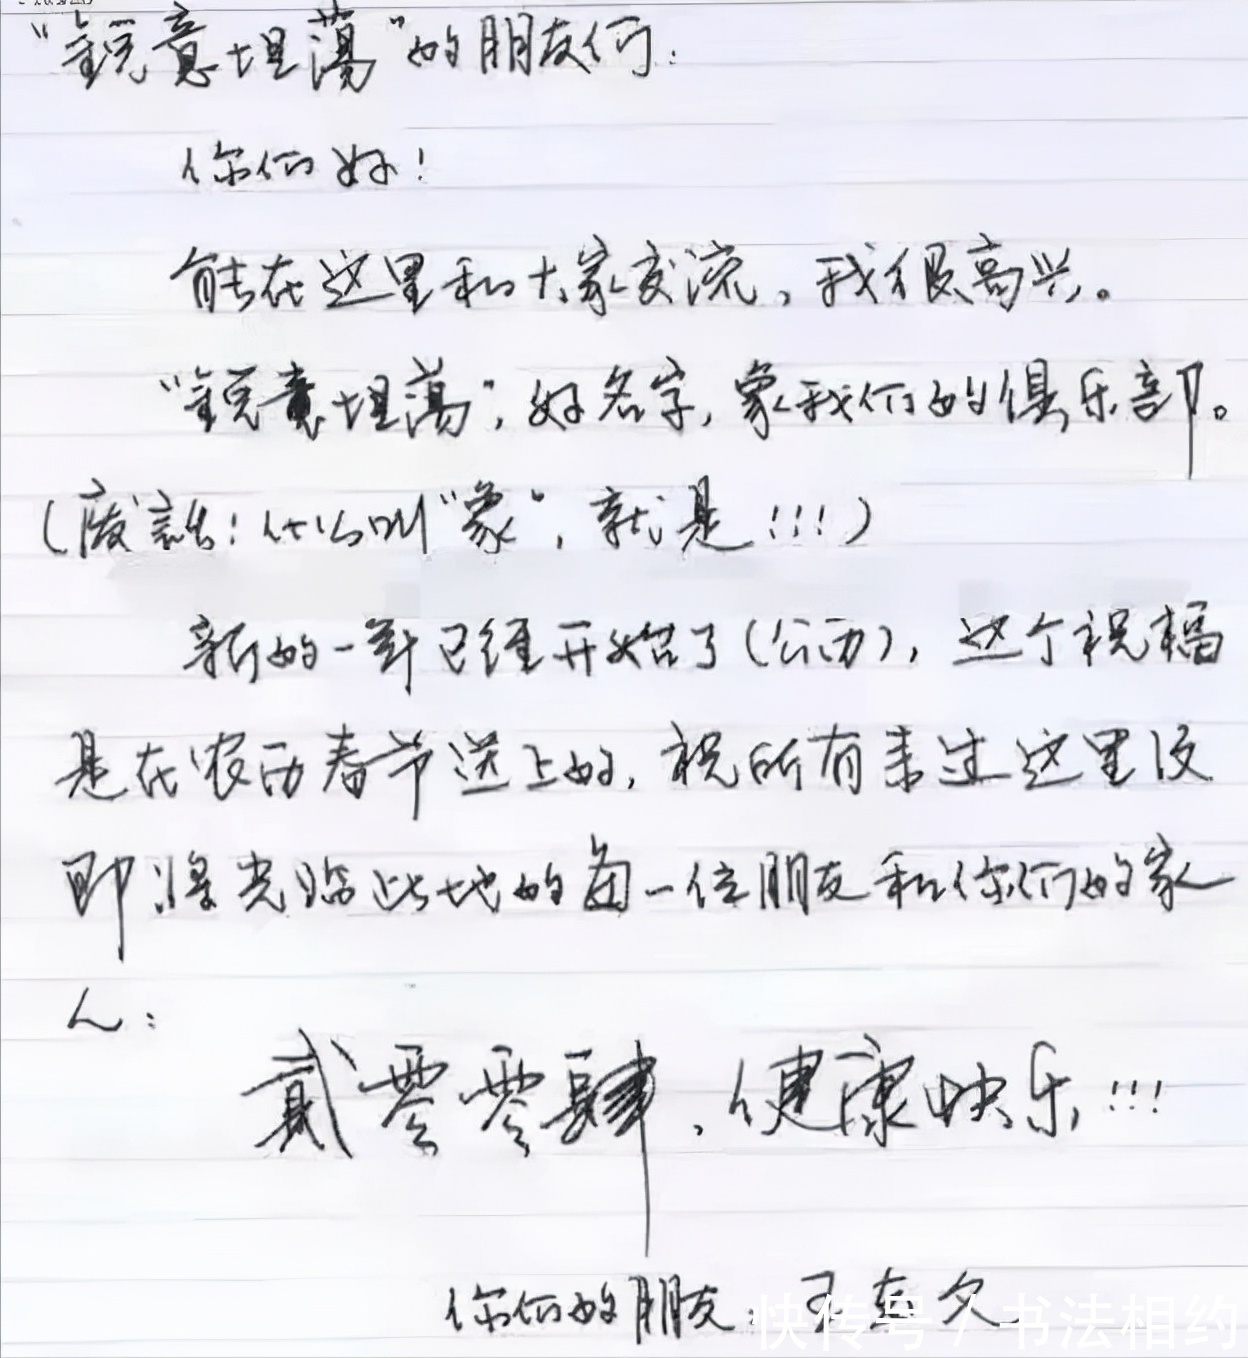 “锐意坦荡”的朋友们：
你们好！
能在这里和大家交流，我很高兴。
“锐意坦荡”，好名字，象我们的俱乐部。
（废话！什么叫“象”，就是！！！）
新的一年已经开始了（公历），这个祝福
是在农历春节送上的，祝所有来过这里没
即将光临此地的每一位朋友和你们的家
人：
贰零零肆，健康快乐！！！
你们的朋友：王
快传号 / 书法相约